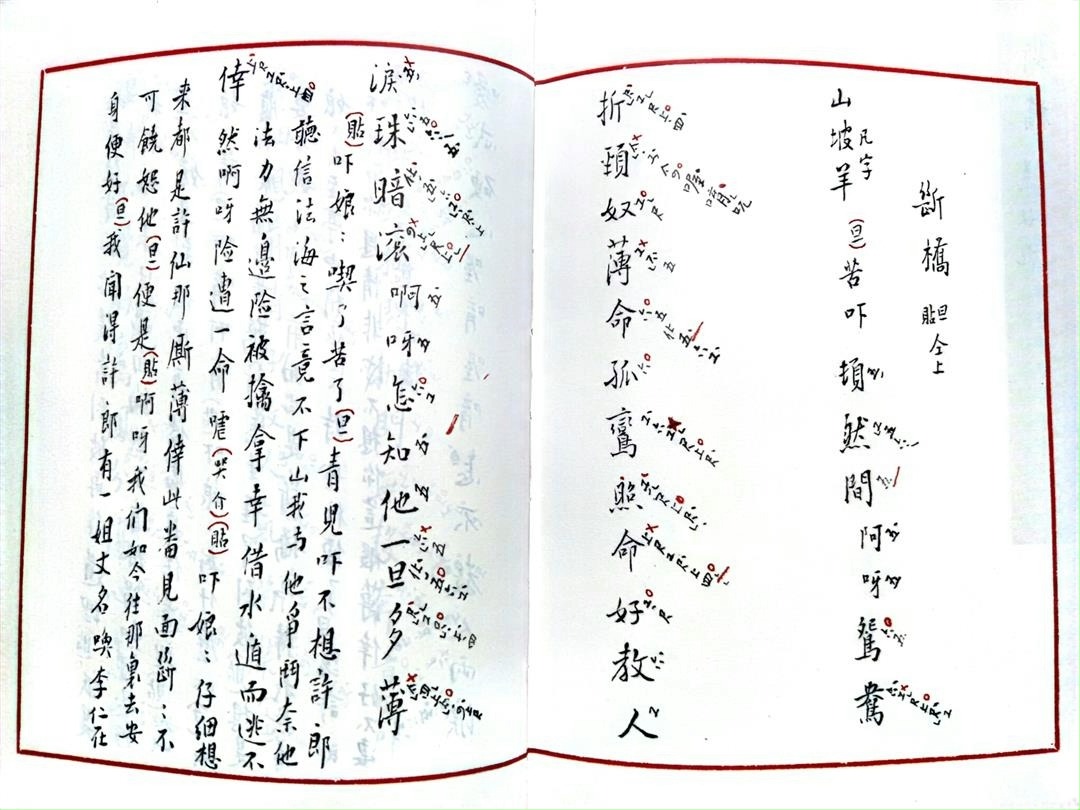 斷橋 旦貼仝上
山坡羊 凡字 (旦)苦吓頓然間阿呀鴛鴦
折頸奴薄命孤鸞照命好教人
淚珠暗滾啊呀怎知他一旦夕薄
(貼)吓娘:喫了苦了(旦)青兒吓不想許郎
聽信法海之言竟不下山我与他爭鬥奈他
法力無邊险被擒拿幸借水遁而逃不
倖然啊呀险遭一命嘘(哭介)(貼)吓娘:仔细想
来都是許仙那厮薄倖此番見面斷:不
可饒恕他(旦)便是(貼)啊呀我们如今往那裏去安
身便好(旦)我聞得許郎有一姐丈名喚李仁在